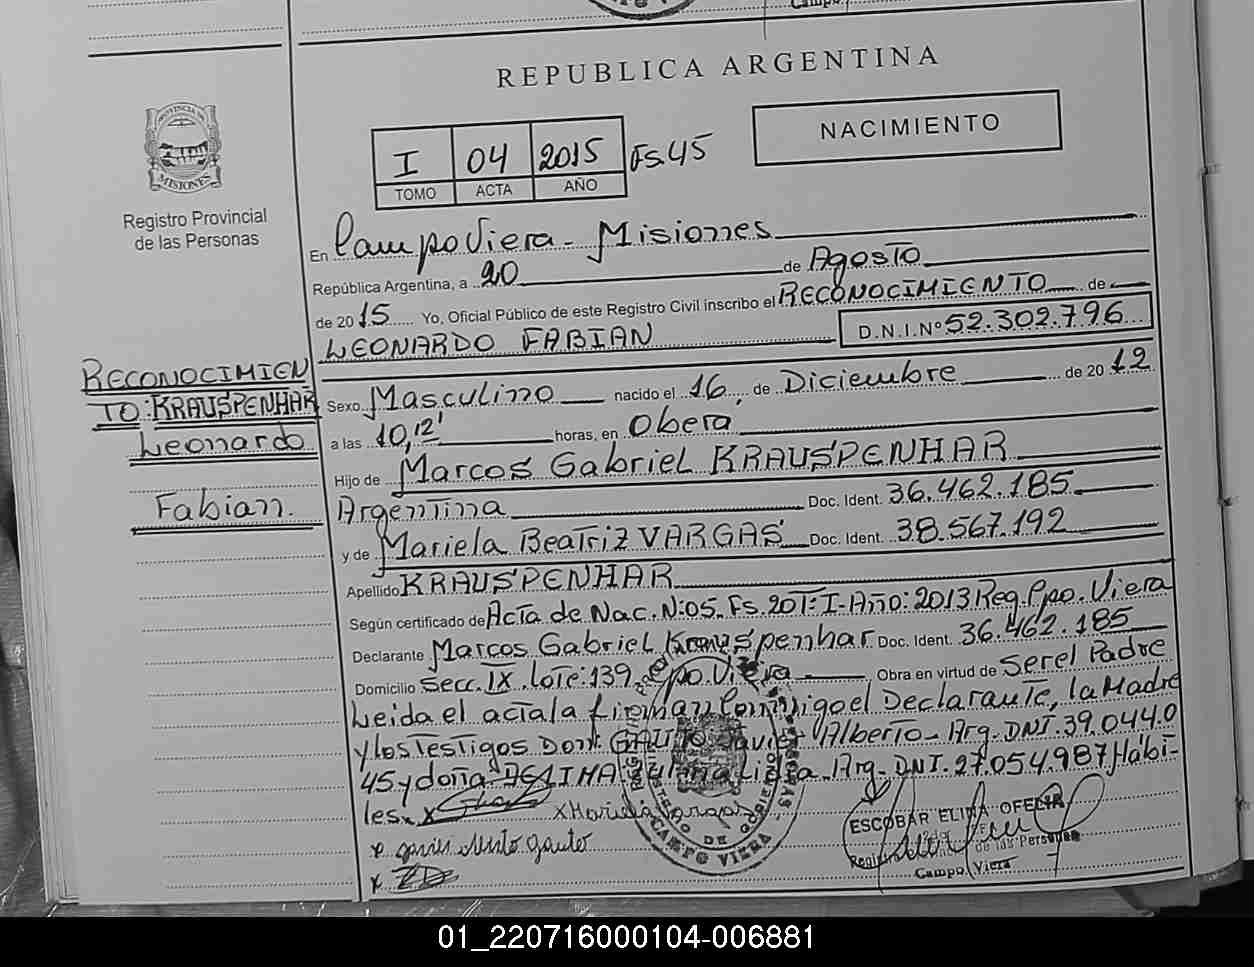 REPUBLICA ARGENTINA
NACIMIENTO
I 04 2015 Fs.45
TOMO ACTA AÑO
PROVINCIA DE
MISIONES
Registro Provincial
de las Personas
En Campo Viera - Misiones
República Argentina, a 20 de Agosto
de 2015 Yo, Oficial Público de este Registro Civil inscribo el RECONOCIMIENTO de
LEONARDO FABIAN D.N.I.Nº 52.302.796
RECONOCIMIEN
TO: KRAUSPENHAR
Leonardo
Fabian.
Sexo Masculino nacido el 16, de Diciembre de 2012
a las 10,12' horas, en Obera
Hijo de Marcos Gabriel KRAUSPENHAR
Argentina Doc. Ident. 36.462.185
y de Mariela Beatriz VARGAS Doc. Ident. 38.567.192
Apellido KRAUSPENHAR
Según certificado de Acta de Nac. N:05. Fs. 20 T: I - Año: 2013 Reg. Cpo. Viera
Declarante Marcos Gabriel Krauspenhar Doc. Ident. 36.462.185
Domicilio Secc. IX. Lote: 139. Cpo. Viera Obra en virtud de Ser el Padre
Leida el acta la firman conmigo el Declarante, la Madre
y los Testigos Don: GAUTO Javier Alberto - Arg. DNI. 39.044.0
45 y doña Liliana Arg. DNI. 27.054.987 Habi-
les. x x Mariela Vargas
x Gauto
x
CAMPO VIERA
ESCOBAR ELINA OFELIA
de las Personas
Campo Viera
01_220716000104-006881